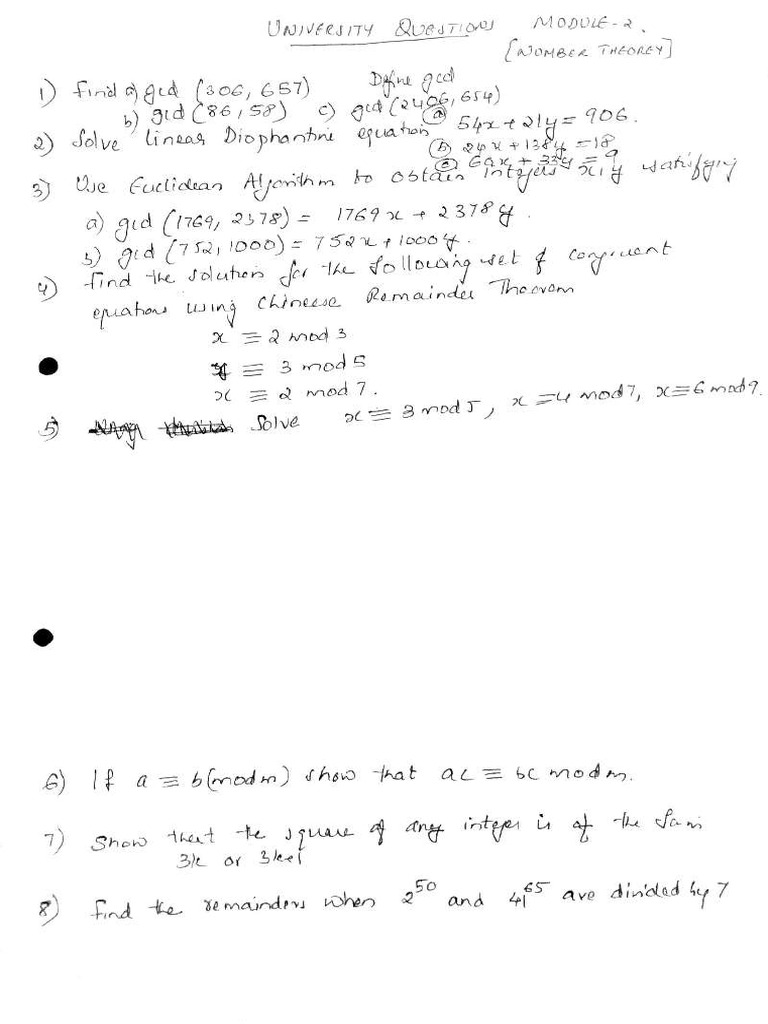 UNIVERSITY QUESTIONS MODULE-2.
[NUMBER THEOREY]
1) Find a) gcd (306, 657) Define gcd
b) gcd (86, 58) c) gcd (2406, 654)
2) Solve linear Diophantine equation (a) 54x + 21y = 906.
(b) 24x + 138y = 18
69x + 33y = 9
3) Use Euclidean Algorithm to obtain integers x, y satisfying
a) gcd (1769, 2378) = 1769x + 2378y.
b) gcd (752, 1000) = 752x + 1000y.
4) Find the solution for the following set of congruent
equations using Chineese Remainder Theorem
x ≡ 2 mod 3
≡ 3 mod 5
x ≡ 2 mod 7.
5) Solve x ≡ 3 mod 5, x ≡ 4 mod 7, x ≡ 6 mod 9.
6) If a ≡ b (mod m) show that ac ≡ bc mod m.
7) Show that the square of any integer is of the
3k or 3k+1
8) Find the remainders when 2^50 and 41^65 are divided by 7